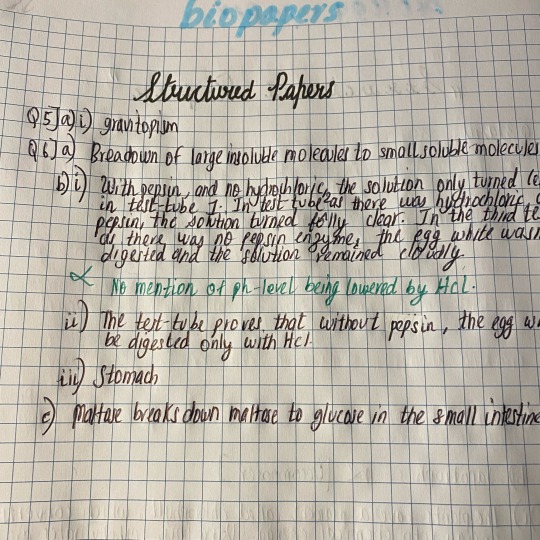 biopapers
Structured Papers
Q5] a) i) gravitopism
Q6] a) Breadown of large insoluble molecules to small soluble molecules
b) i) With pepsin, and no hydrochloric, the solution only turned
in test-tube 1. In test tube 2 as there was hydrochloric,
pepsin, the solution turned fully clear. In the third
as there was no pepsin enzyme, the egg white
digested and the solution remained cloudly.
No mention of ph-level being lowered by Hcl.
ii) The test-tube proves that without pepsin, the egg
be digested only with Hcl.
iii) Stomach
c) Maltase breaks down maltose to glucose in the small intestine